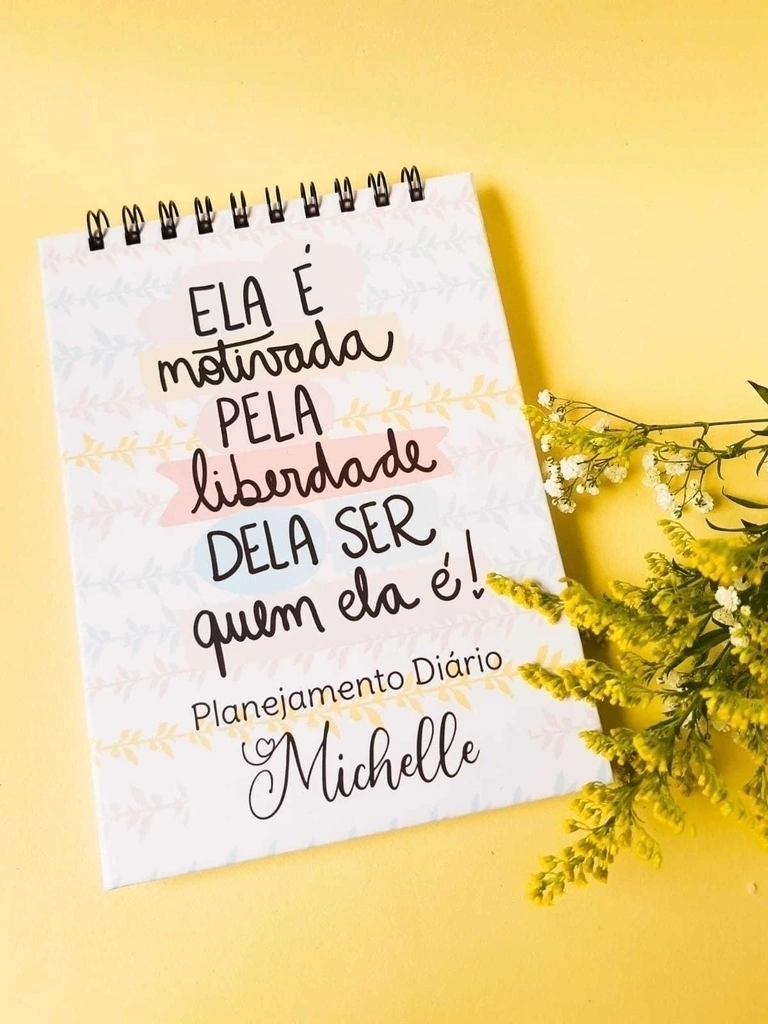 ELA É
motivada
PELA
liberdade
DELA SER
quem ela é!
Planejamento Diário
Michelle